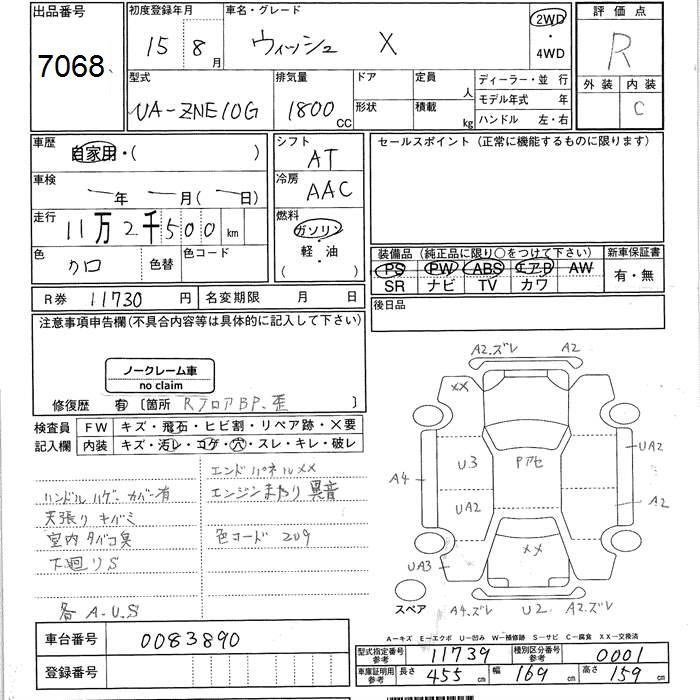 出品番号
7068
初度登録年月
15 8 月
車名・グレード
ウィッシュ X
2WD
・
4WD
評価点
R
外装 内装
C
型式
UA-ZNE10G
排気量
1800 CC
ドア
形状
定員 人
積載 kg
ディーラー・並行
モデル年式 年
ハンドル 左・右
車歴
自家用・( )
車検
年 月( 日)
走行
11万2千500 km
色
クロ
色替
色コード
シフト
AT
冷房
AAC
燃料
ガソリン
・
軽・油
( )
セールスポイント (正常に機能するものに限ります)
装備品 (純正品に限り○をつけて下さい)
PS PW ABS エアB AW
SR ナビ TV カワ
新車保証書
有・無
R券 11730 円
名変期限 月 日
後日品
注意事項申告欄(不具合内容等は具体的に記入して下さい)
ノークレーム車
no claim
修復歴 有 〔箇所 RフロアBP.歪 〕
検査員
記入欄
FW キズ・飛石・ヒビ割・リペア跡・X要
内装 キズ・汚レ・コゲ・穴・スレ・キレ・破レ
エンドパネルXX
ハンドルハゲ カバー有
エンジンまわり異音
天張りキバミ
室内タバコ臭
色コード 209
下廻りS
各A.U.S
A2.ズレ A2
XX
UA2
U3
Pアセ
A4
UA2
A2
XX
UA3
スペア
A4.ズレ U2 A2.ズレ
A-キズ E-エクボ U-凹み W-補修跡 S-サビ C-腐食 XX-交換済
車台番号 0083890
登録番号
型式指定番号
参考
11739
種別区分番号
参考
0001
車庫証明用
参考
長さ 455 cm 幅 169 cm 高さ 159 cm